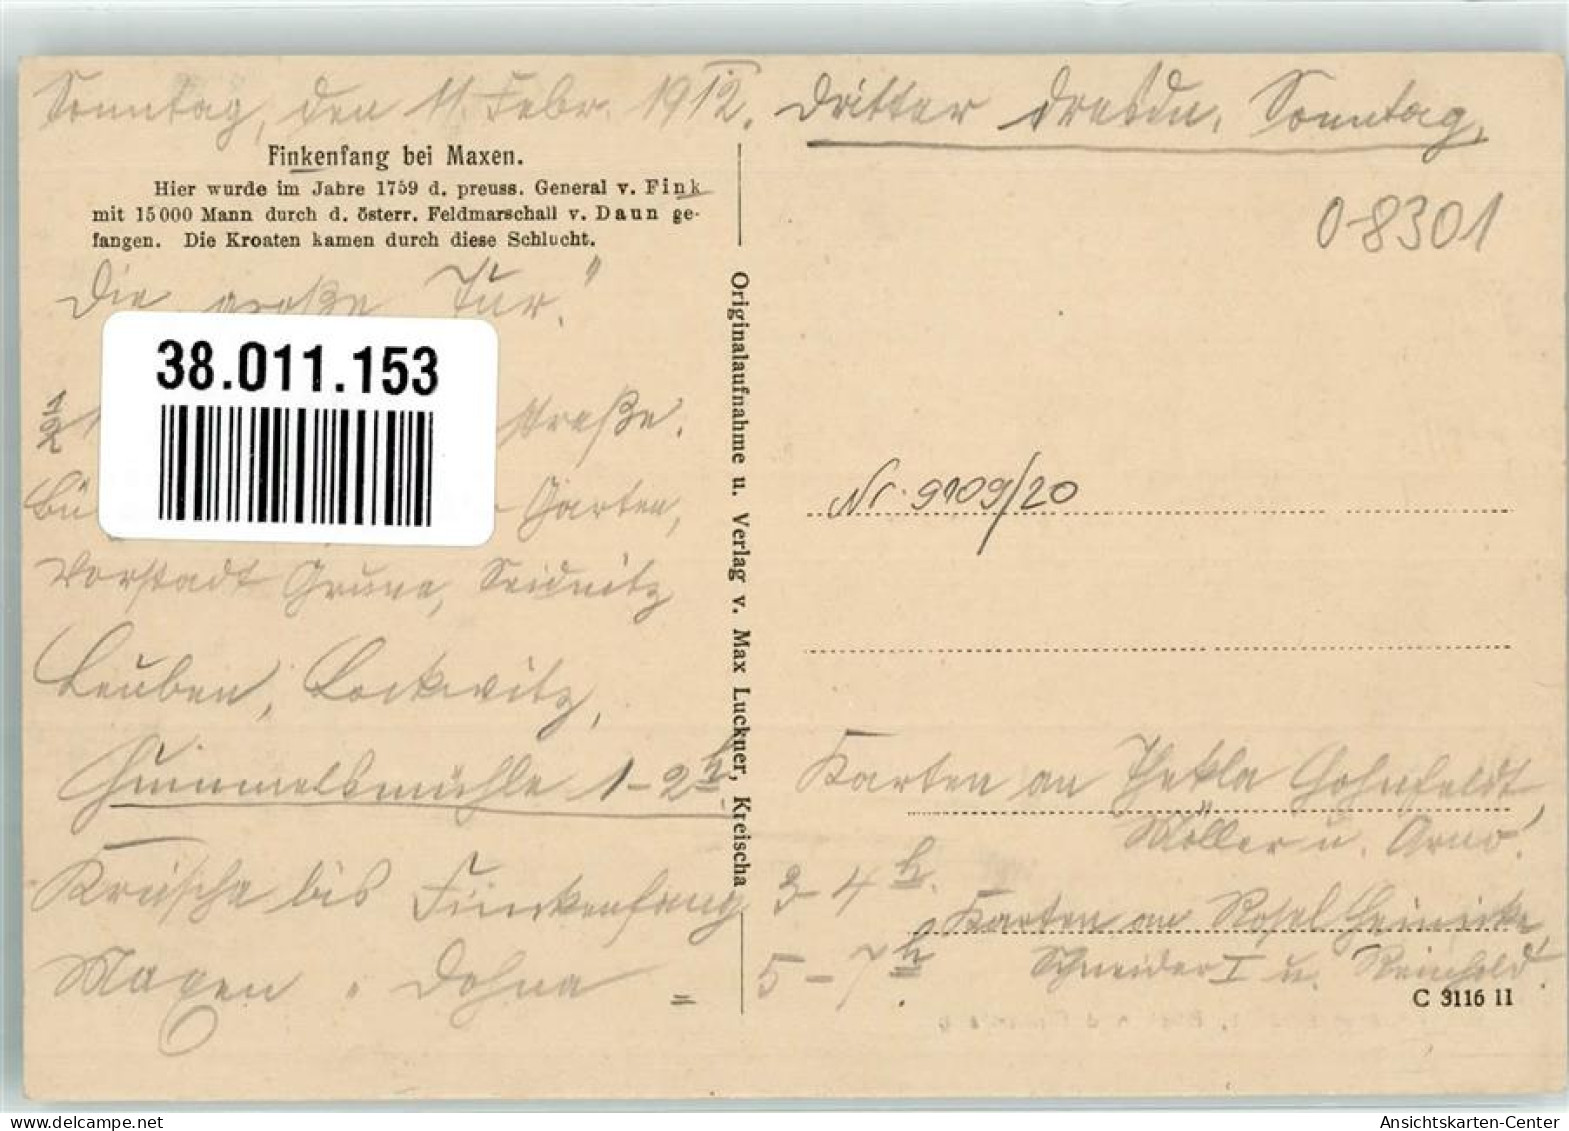 Sonntag, den 11. Febr. 1912. Dritter Dresdn. Sonntag.
Finkenfang bei Maxen.
Hier wurde im Jahre 1759 d. preuss. General v. Fink
mit 15000 Mann durch d. österr. Feldmarschall v. Daun ge-
fangen. Die Kroaten kamen durch diese Schlucht.
0-8301
Die große Tur."
38.011.153
½1
straße.
Bü
Garten,
Vorstadt Gruna, Seidnitz
Leuben, Lockwitz,
Hummelsmühle 1-2 h
Kreischa bis Finkenfang 3-4 h.
Maxen Dohna = 5-7 h.
Originalaufnahme u. Verlag v. Max Luckner, Kreischa
Nr. 9109/20
Karten an Thekla Hohnfeldt,
Möller u. Arno.
Karten an Rosel Heinicke,
Schneider I u. Reinhold.
C 3116 11
www.delcampe.net
Ansichtskarten-Center